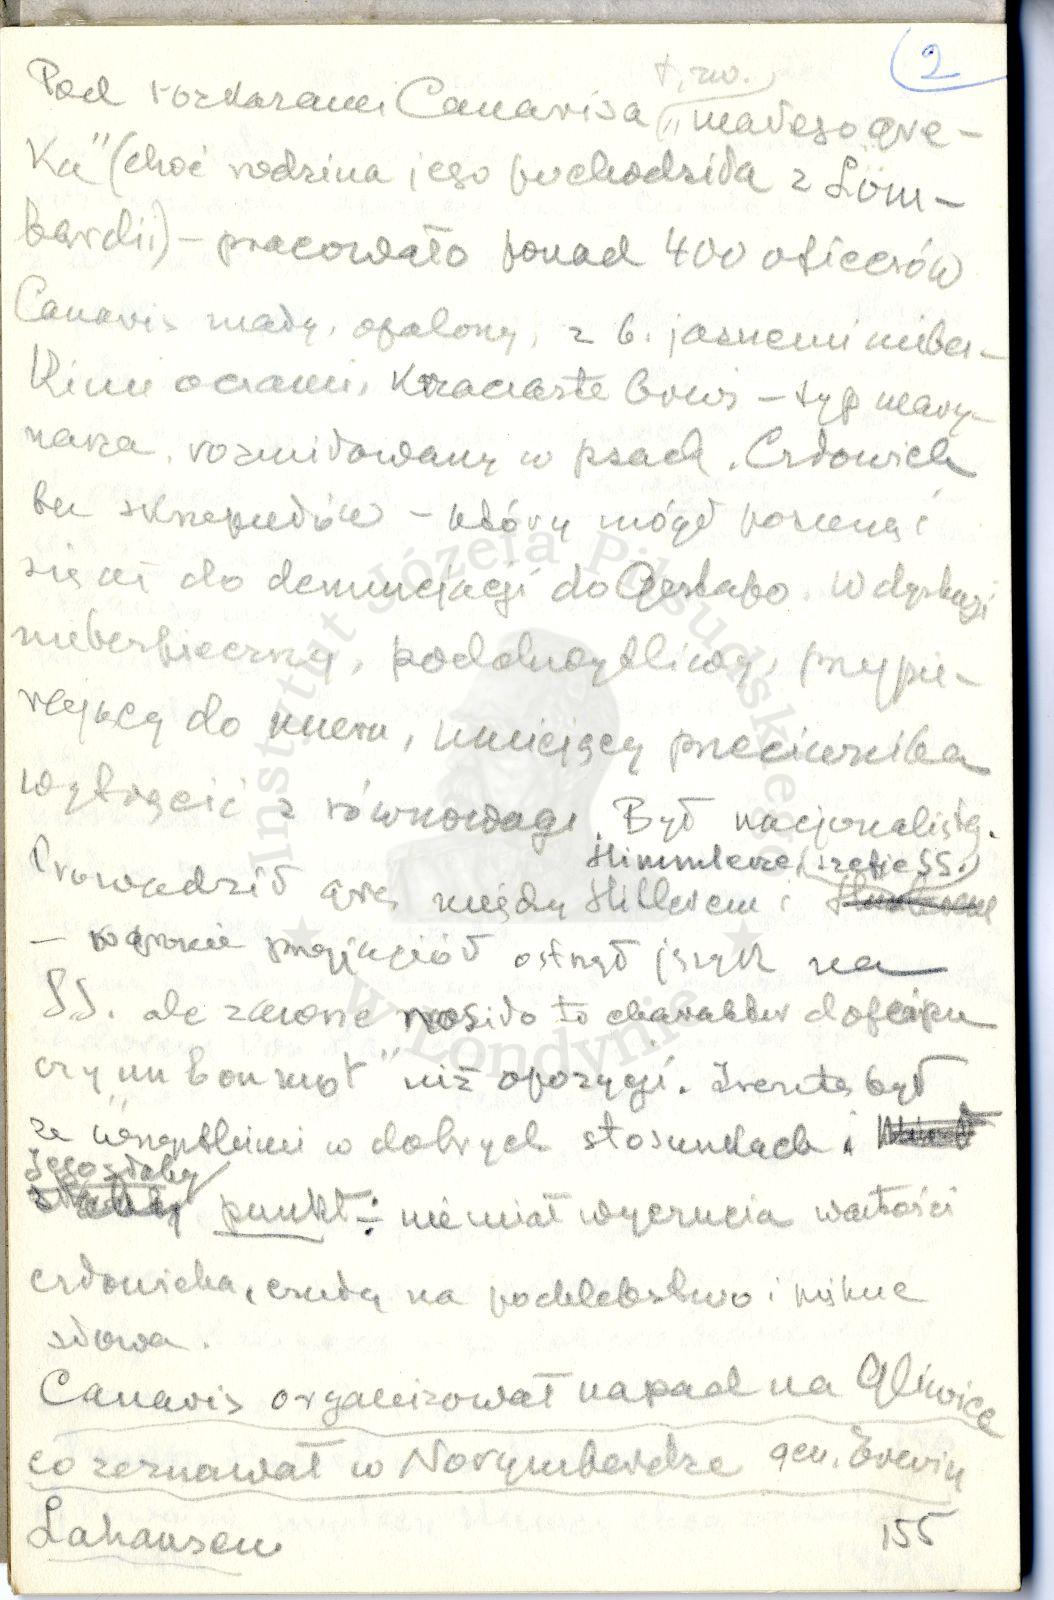 2
t. zw.
Pod rozkazami Canarisa „małego gre-
ka" (choć rodzina jego pochodziła z Lom-
bardii) – pracowało ponad 400 oficerów
Canaris mały, opalony, z b. jasnemi niebies-
kimi oczami, krzaczaste brwi – typ mary-
narza, rozmiłowany w psach. Człowiek
bez skrupułów – który mógł posunąć
się aż do denuncjacji do Gestapo. W dyskusji
niebezpieczny, podchwytliwy, przypie-
rający do muru, umiejący przeciwnika
wytrącić z równowagi. Był nacjonalistą.
Himmlerem, szefie SS.
Prowadził grę między Hitlerem i
– w gronie przyjaciół ostrzył język na
SS. ale zawsze nosiło to charakter dowcipu
czy „bon mot" niż opozycji. Zresztą był
ze wszystkimi w dobrych stosunkach i
Jego słaby
punkt: – nie miał wyczucia wartości
człowieka, czuły na pochlebstwo i piękne
słowa.
Canaris organizował napad na Gliwice
co zeznawał w Norymberdze gen. Erwin
Lahausen
155
Instytut Józefa Piłsudskiego
w Londynie